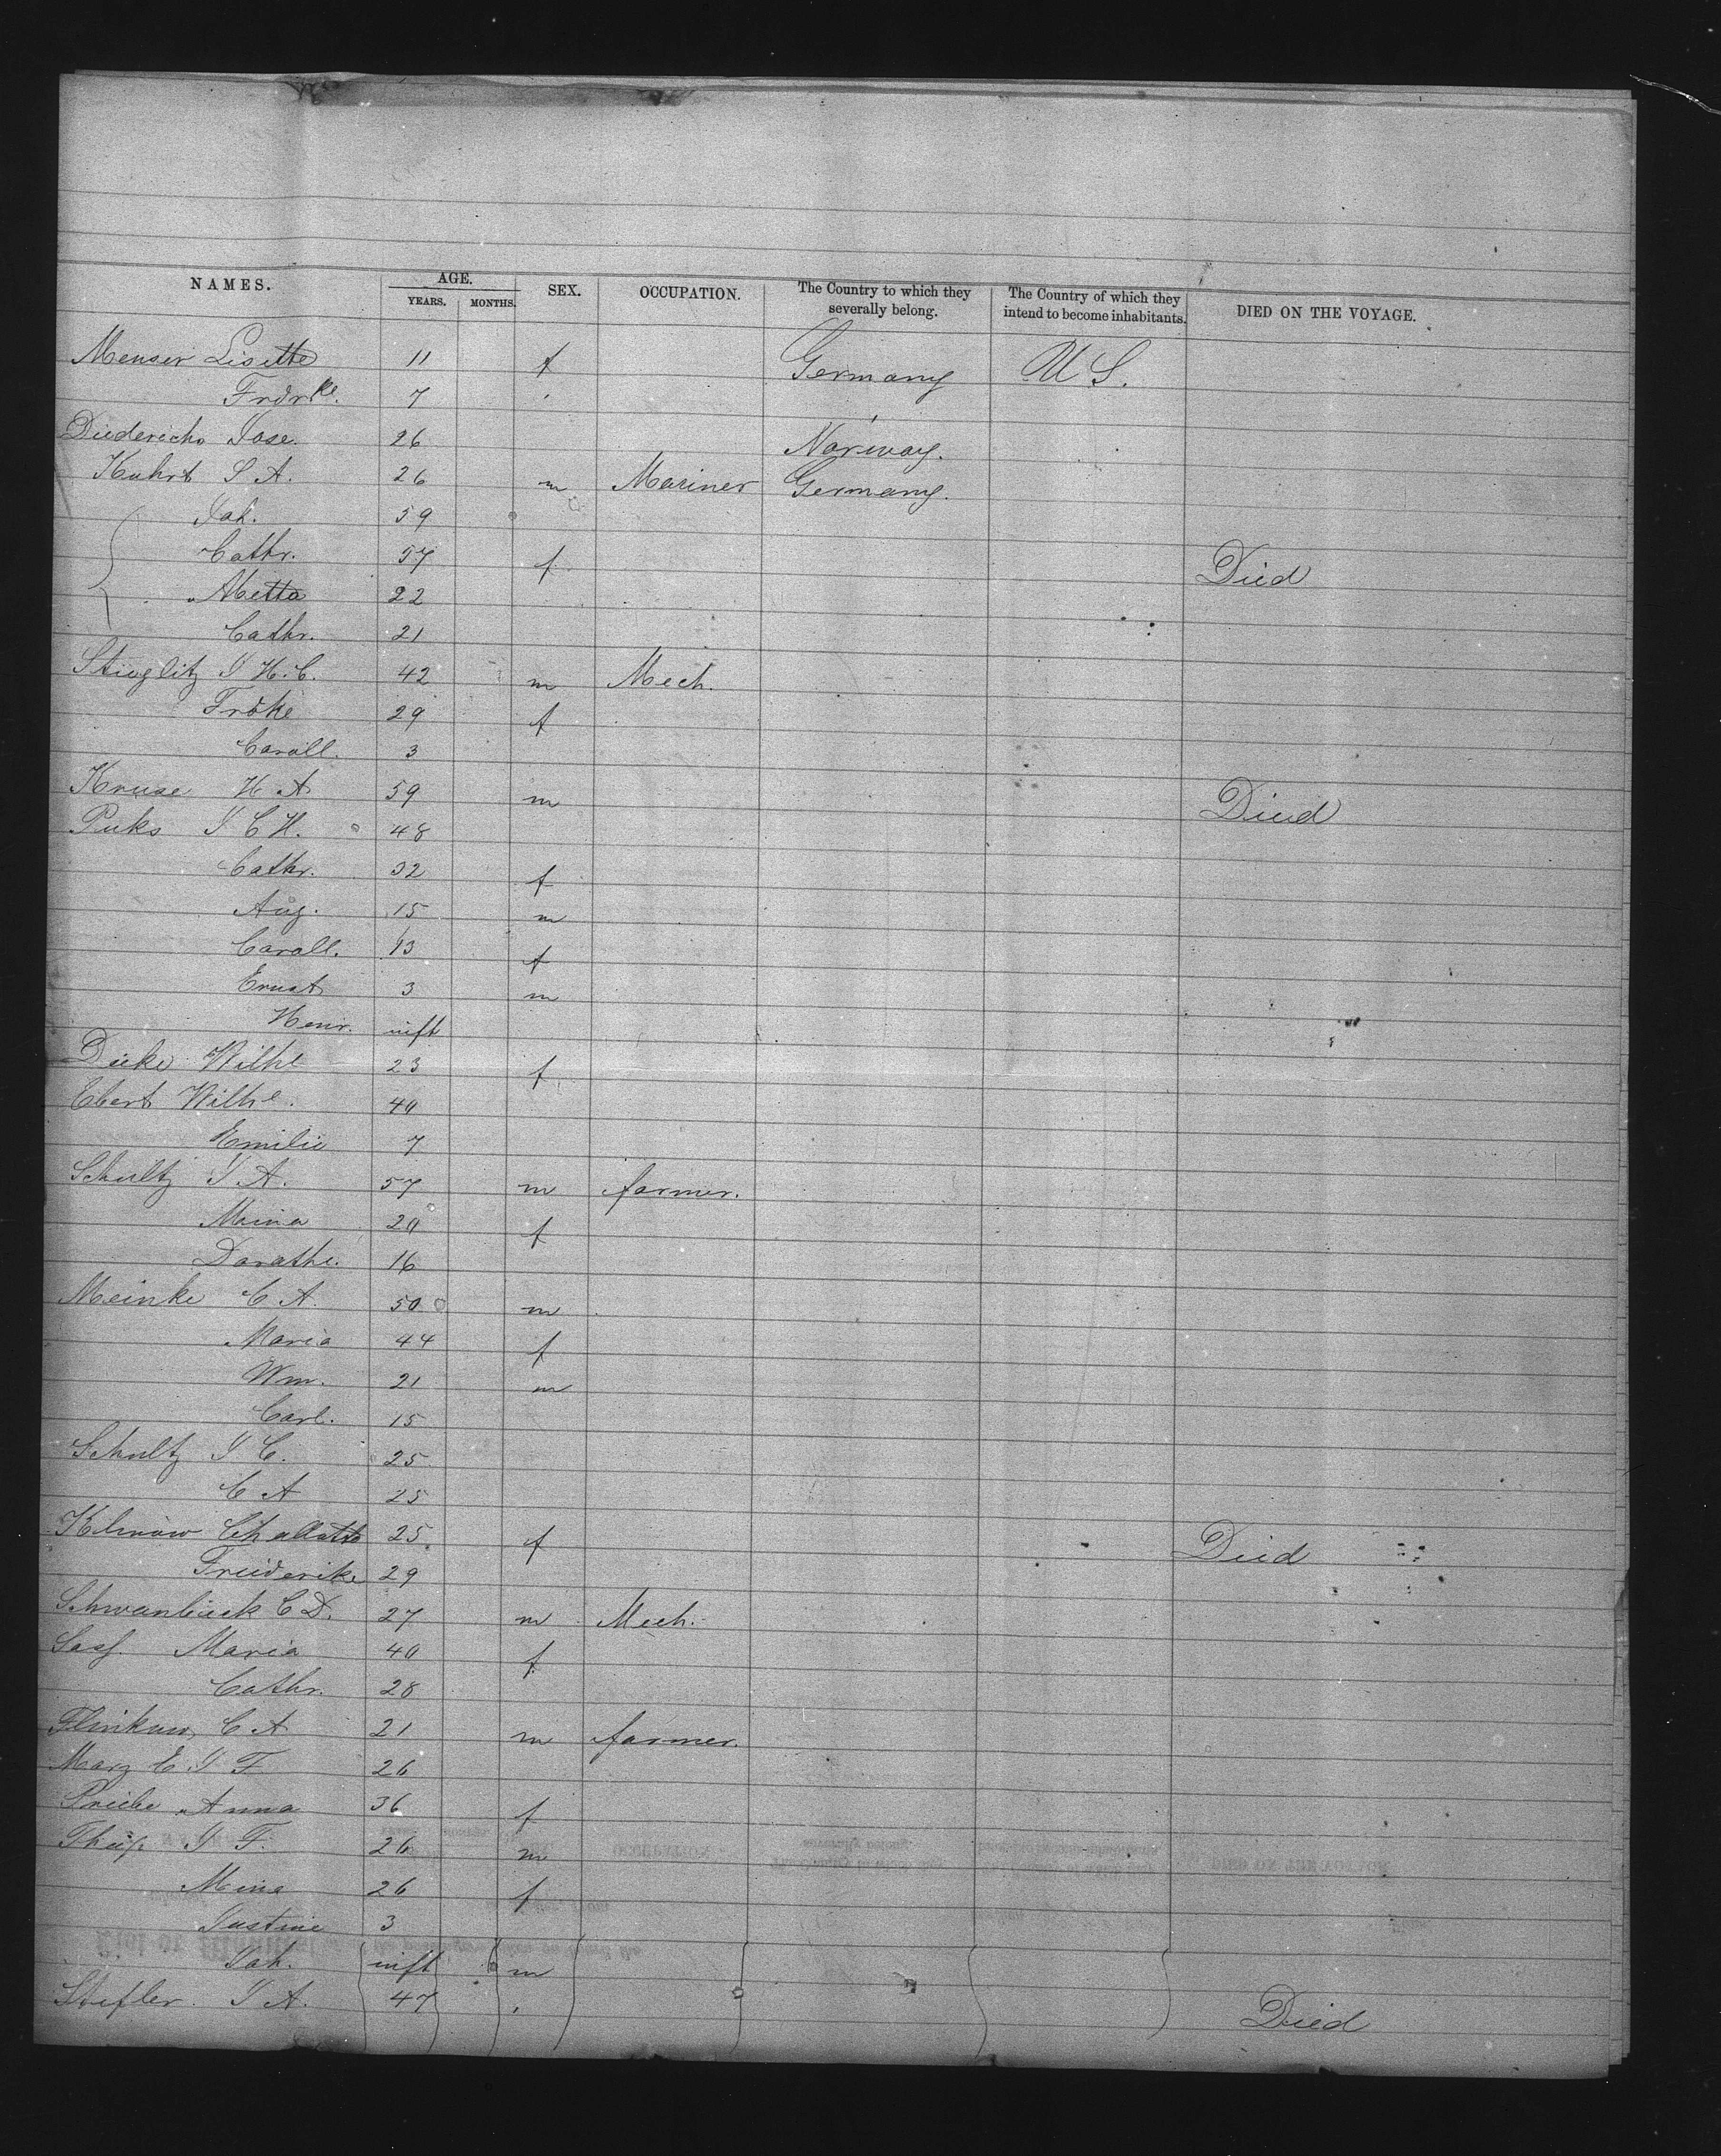 NAMES. AGE. YEARS. MONTHS. SEX. OCCUPATION. The Country to which they severally belong. The Country of which they intend to become inhabitants. DIED ON THE VOYAGE.
Menser Lisette 11 f Germany U S.
Frdrke. 7
Diederichs Jose. 26 Norway.
Kuhrt J A. 26 m Mariner Germany.
Joh. 59
Cathr. 57 f Died
Metta 22
Cathr. 21
Stieglitz J H. C. 42 m Mech.
Frdke 29 f
Caroll. 3
Kruse H A 59 m Died
Puks J C H. 48
Cathr. 32 f
Aug. 15 m
Caroll. 13 f
Ernst 3 m
Henr. inft
Dieke Wilhe 23 f
Ebert Wilhe. 40
Emilie 7
Schultz J A. 57 m farmer.
Mina 20 f
Dorothe. 16
Meinke C A. 50 m
Maria 44 f
Wm. 21 m
Carl. 15
Schultz J C. 25
C A 25
Challotte 25. f Died
Friederike 29
Schwanbieck C D. 27 m Mech.
Sass. Maria 40 f
Cathr. 28
Flinkow, C A 21 m farmer.
Marz E. J F 26
Priebe Anna 36 f
J F. 26 m
Mine 26 f
Justine 3
Joh. inft m
Stefler. J A. 47 Died